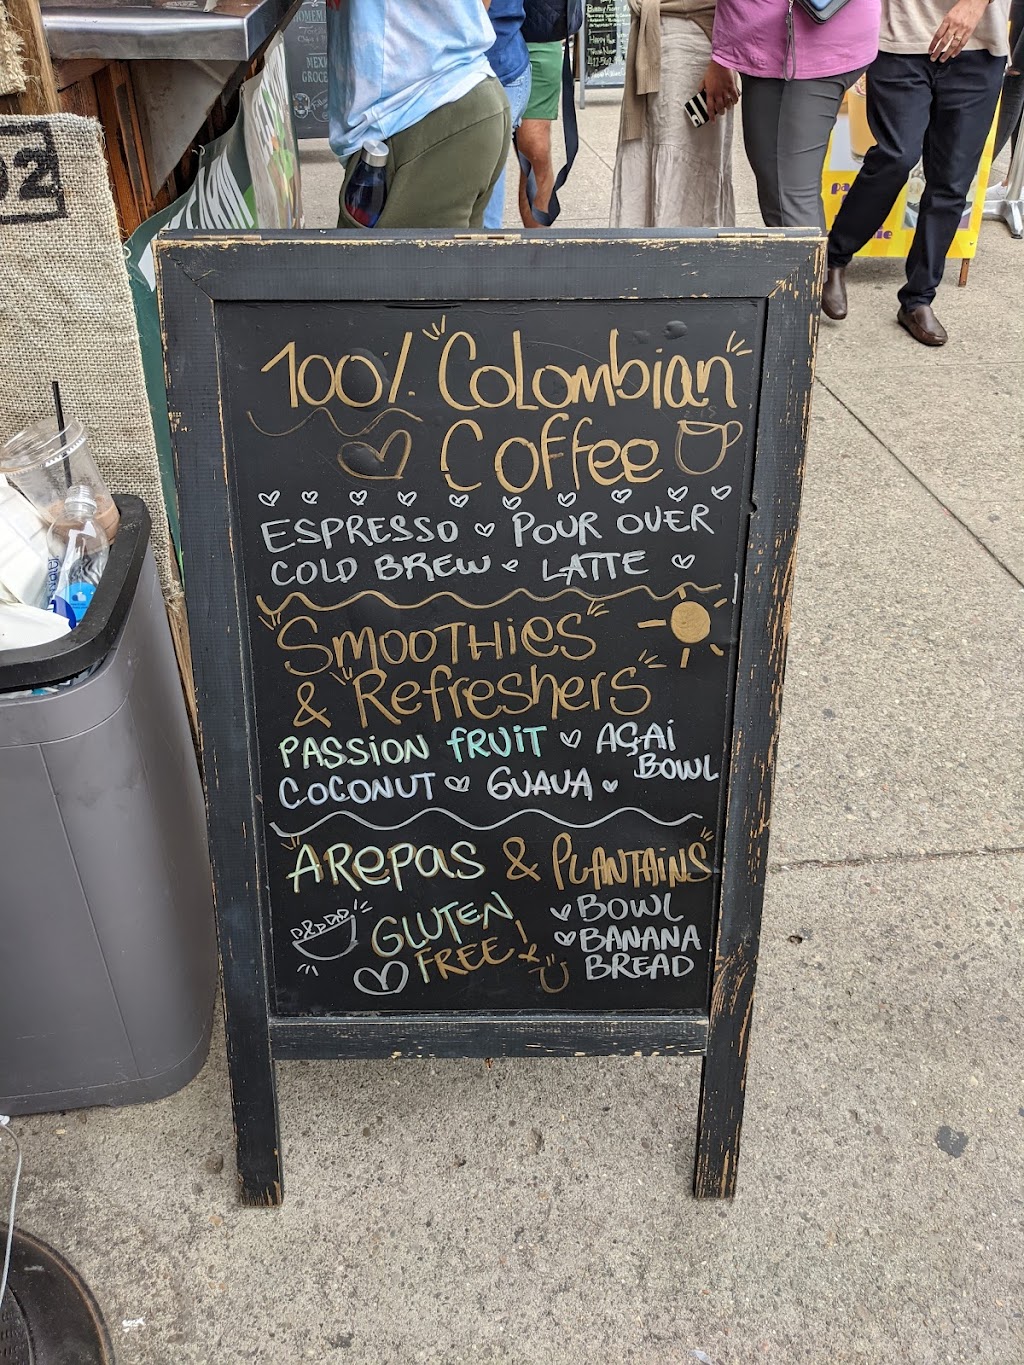 100% "Colombian"
Coffee
ESPRESSO POUR OVER
COLD BREW LATTE
"SMOOTHIES"
& "Refreshers"
PASSION FRUIT AÇAI
BOWL
COCONUT GUAVA
"AREPAS & PLANTAINS"
GLUTEN
FREE!
BOWL
BANANA
BREAD